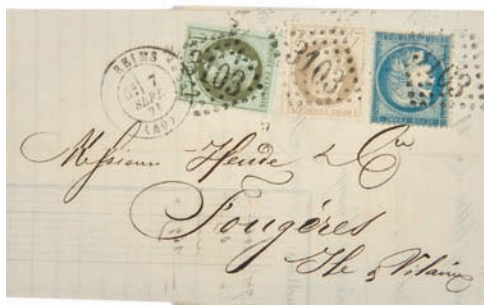 REIMS
7
SEPT
(49)
3103
3103
103
Messieurs Heude & Cie
Fougères
Ile & Vilaine